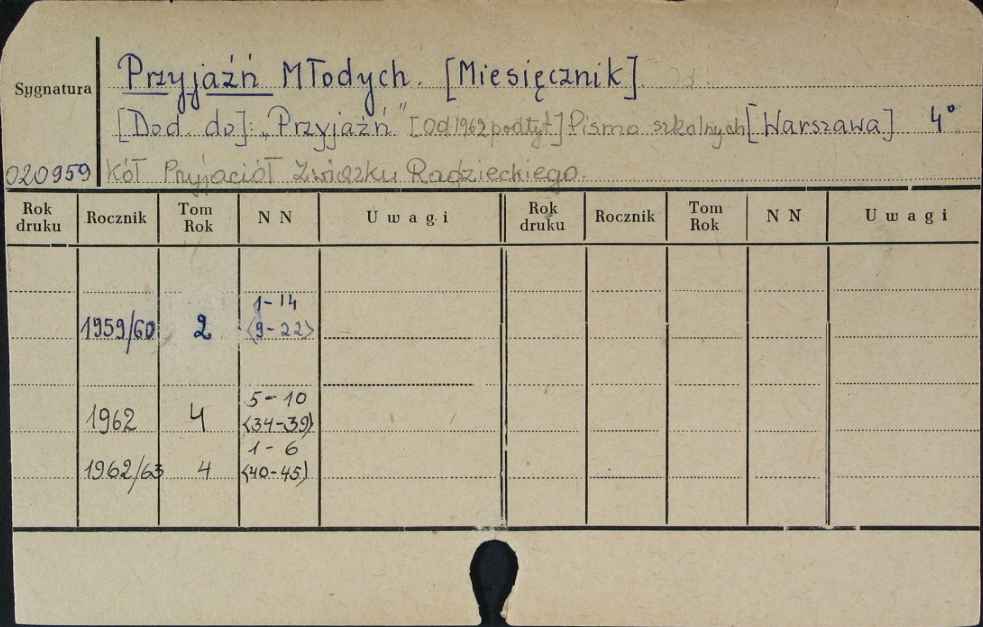 Sygnatura
Przyjaźń Młodych. [Miesięcznik].
[Dod. do]: "Przyjaźń" [Od 1962 podtyt.] Pismo szkolnych [Warszawa] 4°
020959 Kół Przyjaciół Związku Radzieckiego.
Rok druku Rocznik Tom Rok NN Uwagi Rok druku Rocznik Tom Rok NN Uwagi
1-14
1959/60 2 <9-22>
5-10
1962 4 <34-39>
1-6
1962/63 4 <40-45>